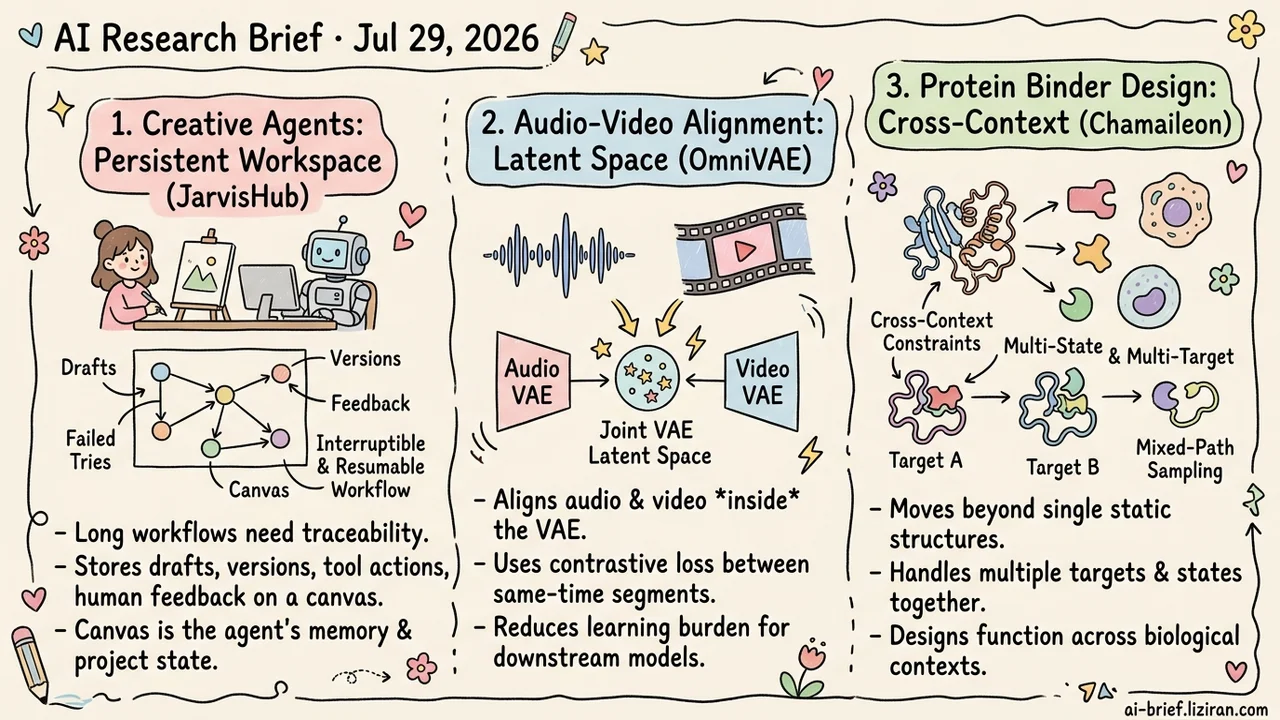 AI Research Brief · Jul 29, 2026
1. Creative Agents:
Persistent Workspace
(JarvisHub)
Drafts
Failed
Tries
Versions
Feedback
Interruptible
& Resumable
Workflow
Canvas
– Long workflows need traceability.
– Stores drafts, versions, tool actions,
human feedback on a canvas.
– Canvas is the agent's memory &
project state.
2. Audio-Video Alignment:
Latent Space (OmniVAE)
Audio
VAE
Video
VAE
Joint VAE
Latent Space
– Aligns audio & video *inside*
the VAE.
– Uses contrastive loss between
same-time segments.
– Reduces learning burden for
downstream models.
3. Protein Binder Design:
Cross-Context (Chamaileon)
Cross-Context
Constraints
Multi-State & Multi-Target
Target A
Target B
Mixed-Path
Sampling
– Moves beyond single static
structures.
– Handles multiple targets & states
together.
– Designs function across biological
contexts.
ai-brief.liziran.com